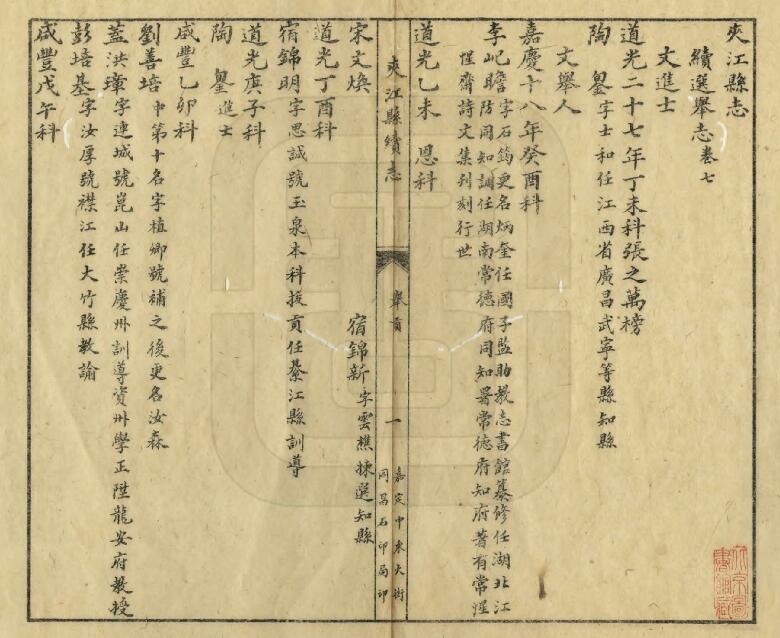 夾江縣志
續選舉志卷七
文進士
道光二十七年丁未科張之萬榜
陶鋆字士和任江西省廣昌武寧等縣知縣
文舉人
嘉慶十八年癸酉科
李屺瞻字石筠更名炳奎任國子監助教志書館纂修任湖北江
防同知調任湖南常德府同知署常德府知府著有常惺
惺齋詩文集列刻行世
道光乙未恩科
夾江縣續志
舉貢
一
嘉定中末大街
同昌石印局印
宋文煥
宿錦新字雲樵揀選知縣
道光丁酉科
宿錦明字思誠號玉泉本科拔貢任綦江縣訓導
道光庚子科
陶鋆進士
咸豐乙卯科
劉善培中第十名字植卿號補之後更名汝森
蓋洪璋字連城號崑山任崇慶州訓導資州學正陞龍安府教授
彭培基字汝厚號襟江任大竹縣教諭
咸豐戊午科